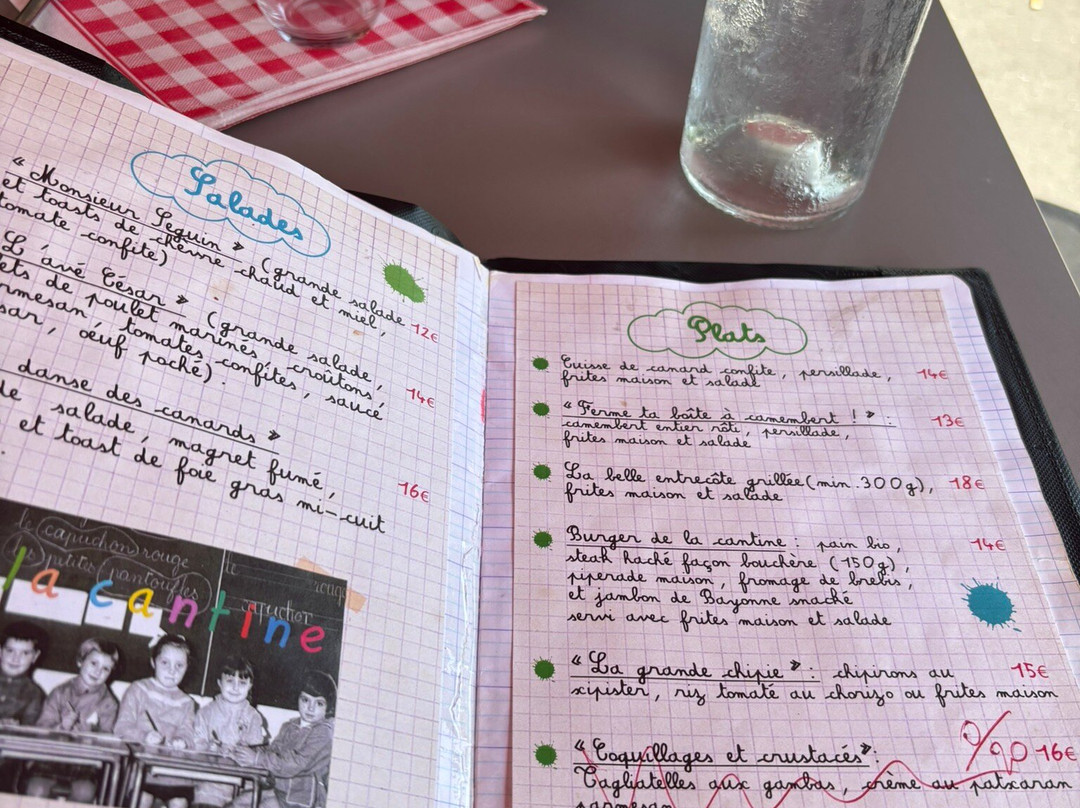 Salades
« Monsieur Seguin » (grande salade
et toasts de chèvre chaud et miel,
tomate confite)
12€
L'avé César » (grande salade,
poulet marinés, croûtons,
tomates confites, sauce
œuf poché).
14€
danse des canards »
salade, magret fumé,
et toast de foie gras mi-cuit
16€
le capuchon rouge
les petites pantoufles
la cantine
Plats
Cuisse de canard confite, persillade, 14€
frites maison et salade
« Ferme ta boîte à camembert ! » : 13€
camembert entier rôti, persillade,
frites maison et salade
La belle entrecôte grillée (min. 300g), 18€
frites maison et salade
Burger de la cantine : pain bio, 14€
steak haché façon bouchère (150g),
piperade maison, fromage de brebis,
et jambon de Bayonne snaché
servi avec frites maison et salade
« La grande chipie » : chipirons au 15€
xipister, riz tomaté au chorizo ou frites maison
« Coquillages et crustacés » : 16€
Tagliatelles aux gambas, crème au patxaran
parmesan